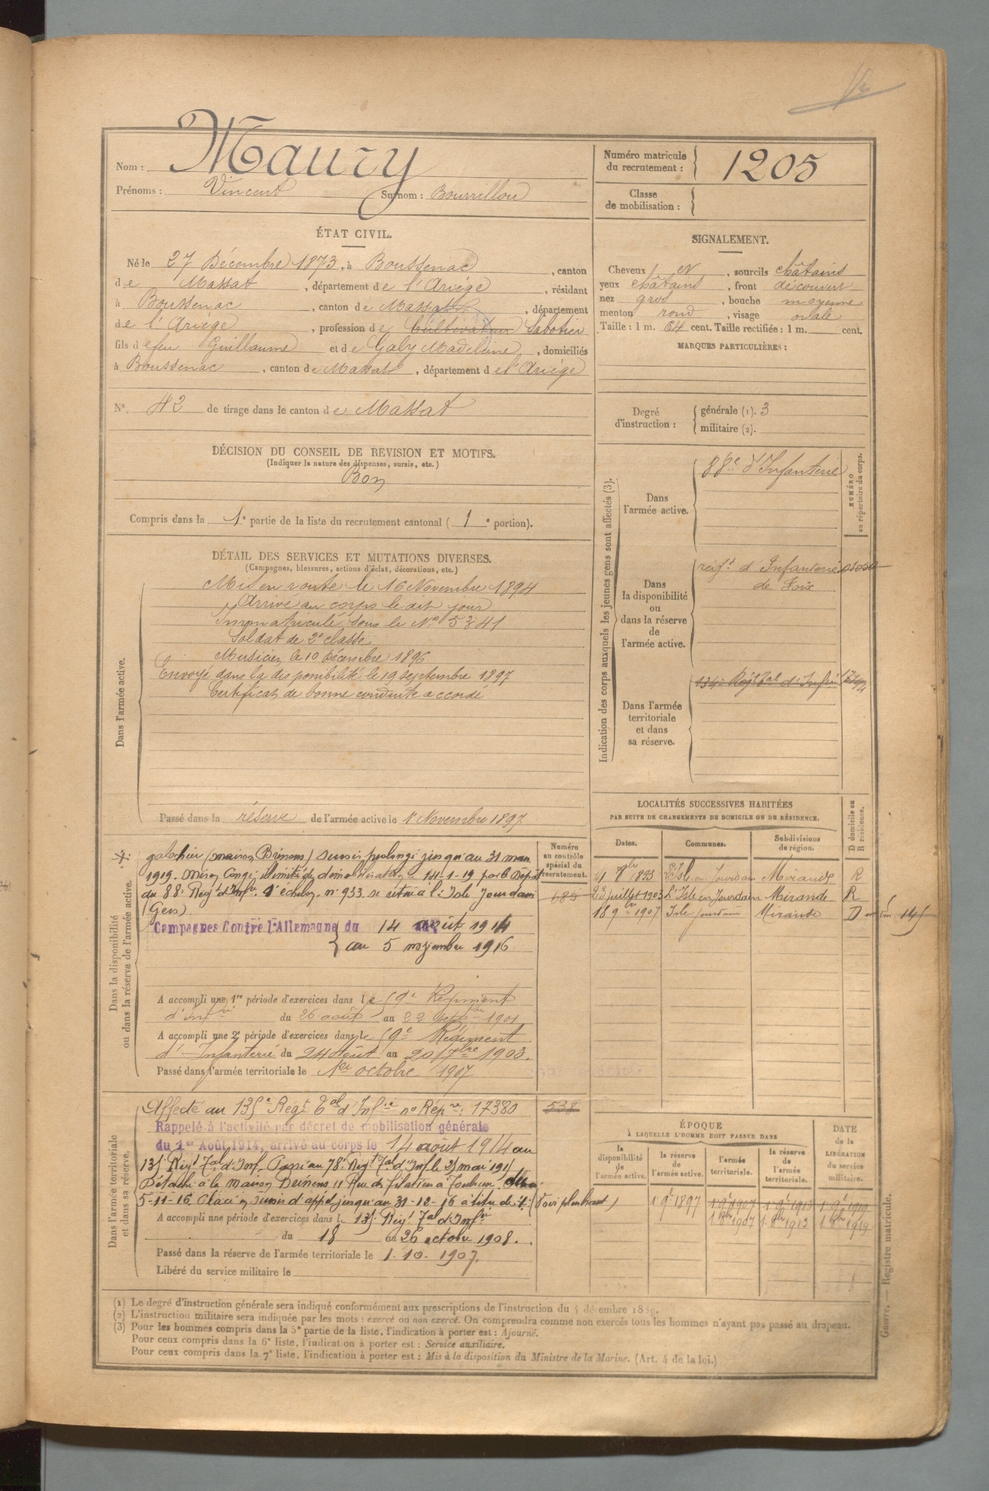 Nom : Maury
Prénoms : Vincent Surnom : Bourrillou
Numéro matricule du recrutement : 1205
Classe de mobilisation :
ÉTAT CIVIL.
Né le 27 Décembre 1873, à Boussenac, canton
de Massat, département de l'Ariège, résidant
à Boussenac, canton de Massat, département
de l'Ariège, profession de Cultivateur Sabotier
fils de feu Guillaume et de Galy Madeleine, domiciliés
à Boussenac, canton de Massat, département de l'Ariège
N° 42 de tirage dans le canton de Massat
SIGNALEMENT.
Cheveux et, sourcils châtains
yeux châtains, front découvert
nez gros, bouche moyenne
menton rond, visage ovale
Taille : 1 m. 64 cent. Taille rectifiée : 1 m. cent.
MARQUES PARTICULIÈRES :
Degré d'instruction : générale (1). 3
militaire (2).
DÉCISION DU CONSEIL DE REVISION ET MOTIFS.
(Indiquer la nature des dispenses, sursis, etc.)
Bon
Compris dans la 1e partie de la liste du recrutement cantonal ( 1 e portion).
DÉTAIL DES SERVICES ET MUTATIONS DIVERSES.
(Campagnes, blessures, actions d'éclat, décorations, etc.)
Dans l'armée active.
Mis en route le 16 Novembre 1894
Arrivé au corps le dit jour
Immatriculé sous le N° 5341
Soldat de 2e classe
Musicien le 10 Décembre 1896
Envoyé dans la disponibilité le 19 Septembre 1897
Certificat de bonne conduite accordé
Passé dans la réserve de l'armée active le 1 Novembre 1897
Indication des corps auxquels les jeunes gens sont affectés (3).
NUMÉRO au répertoire du corps.
Dans l'armée active. 88e d'Infanterie
Dans la disponibilité ou dans la réserve de l'armée active. régt d'Infanterie de Foix
Dans l'armée territoriale et dans sa réserve.
LOCALITÉS SUCCESSIVES HABITÉES
PAR SUITE DE CHANGEMENTS DE DOMICILE OU DE RÉSIDENCE.
Dates. Communes. Subdivisions de région. D domicile ou R résidence.
L'Isle en Jourdain Mirande R
23 juillet 1903 L'Isle en Jourdain Mirande R
18 9bre 1907 Isle Jourdain Mirande D
Dans la disponibilité ou dans la réserve de l'armée active.
Numéro au contrôle spécial du recrutement.
galochier (maison Brinons) Sursis prolongé jusqu'au 31 mars
1919.
au 88e Régt d'Infie n° 933 se retire à l'Isle Jourdain
(Gers)
Campagnes Contre l'Allemagne du 14 août 1914
au 5 novembre 1916
A accompli une 1re période d'exercices dans le 59e Régiment
d'Infrie du 26 août au 22 septbre 1901
A accompli une 2e période d'exercices dans le 59e Régiment
d'Infanterie du 24 Août au 20 7bre 1903.
Passé dans l'armée territoriale le 1er octobre 1907
Dans l'armée territoriale et dans sa réserve.
Affecté au 135e Régt Tal d'Infie n° Rép. 17380
538
Rappelé à l'activité par décret de mobilisation générale
du 1er Août 1914, arrivé au corps le 14 août 1914 au
135 Régt Tal d'Inf. Passé au 78e Régt Tal d'Inf. le 31 mai 191
5-11-16. en sursis d'appel jusqu'au 31-12-16 (Voir plus haut)
A accompli une période d'exercices dans le 135 Régt Tal d'Infrie
du 18 au 26 octobre 1908.
Passé dans la réserve de l'armée territoriale le 1-10-1907.
Libéré du service militaire le
ÉPOQUE
À LAQUELLE L'HOMME DOIT PASSER DANS
la disponibilité de l'armée active. la réserve de l'armée active. l'armée territoriale. la réserve de l'armée territoriale.
DATE de la LIBÉRATION du service militaire.
1 9e 1897 1 9e 1907 1 9e 1913 1 9e 1919
1 8bre 1907 1 8bre 1913 1 8bre 1919
(1) Le degré d'instruction générale sera indiqué conformément aux prescriptions de l'instruction du 4 décembre 1889.
(2) L'instruction militaire sera indiquée par les mots : exercé ou non exercé. On comprendra comme non exercés tous les hommes n'ayant pas passé au drapeau.
(3) Pour les hommes compris dans la 5e partie de la liste, l'indication à porter est : Ajourné.
Pour ceux compris dans la 6e liste, l'indication à porter est : Service auxiliaire.
Pour ceux compris dans la 7e liste, l'indication à porter est : Mis à la disposition du Ministre de la Marine. (Art. 4 de la loi.)
Guerre. — Registre matricule.